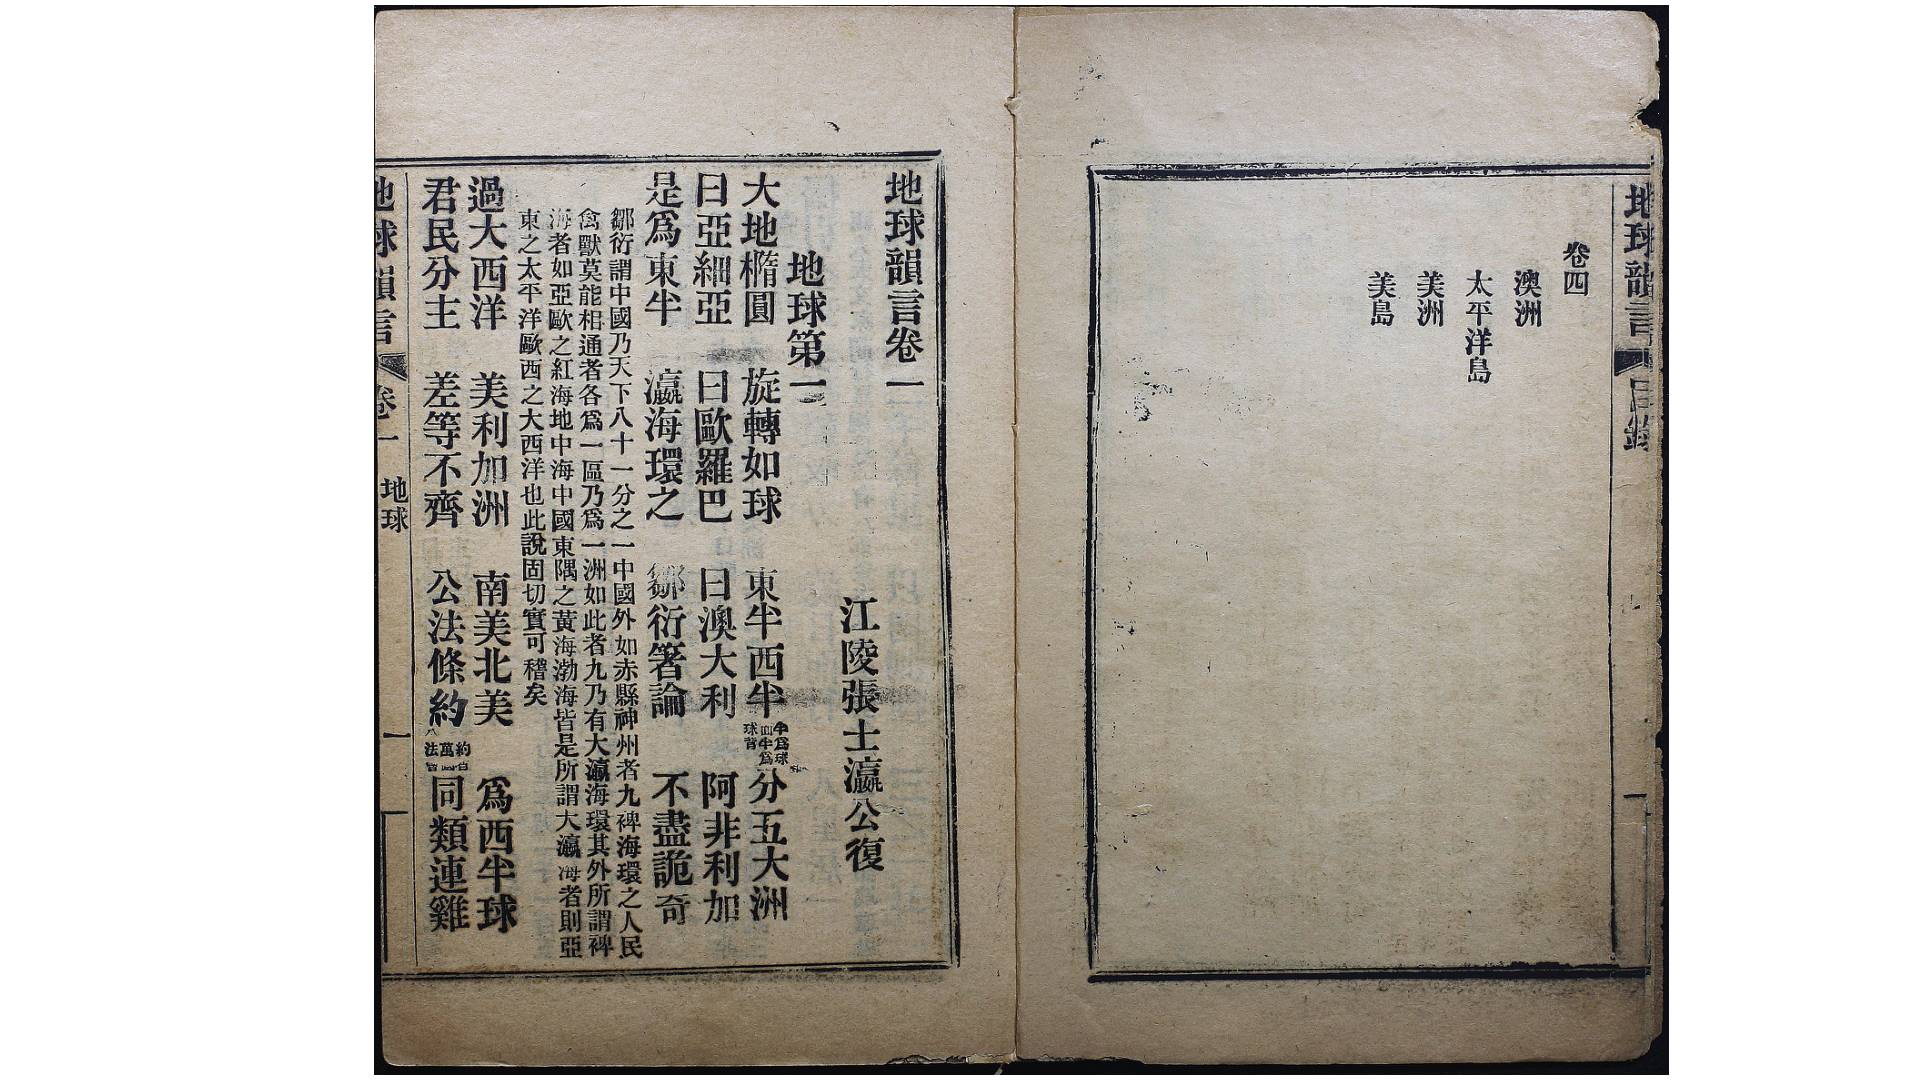 地球韻言
目錄
一
卷四
澳洲
太平洋島
美洲
美島
地球韻言卷一
江陵張士瀛公復
地球第一
大地橢圓 旋轉如球 東半西半 分五大洲
曰亞細亞 曰歐羅巴 曰澳大利 阿非利加
是爲東半 瀛海環之 鄒衍箸論 不盡詭奇
鄒衍謂中國乃天下八十一分之一中國外如赤縣神州者九裨海環之人民
禽獸莫能相通者各爲一區乃爲一洲如此者九乃有大瀛海環其外所謂裨
海者如亞歐之紅海地中海中國東隅之黃海渤海皆是所謂大瀛海者則亞
東之太平洋歐西之大西洋也此說固切實可稽矣
過大西洋 美利加洲 南美北美 爲西半球
君民分主 差等不齊 公法條約 同類連雞
地球韻言
卷一 地球
一